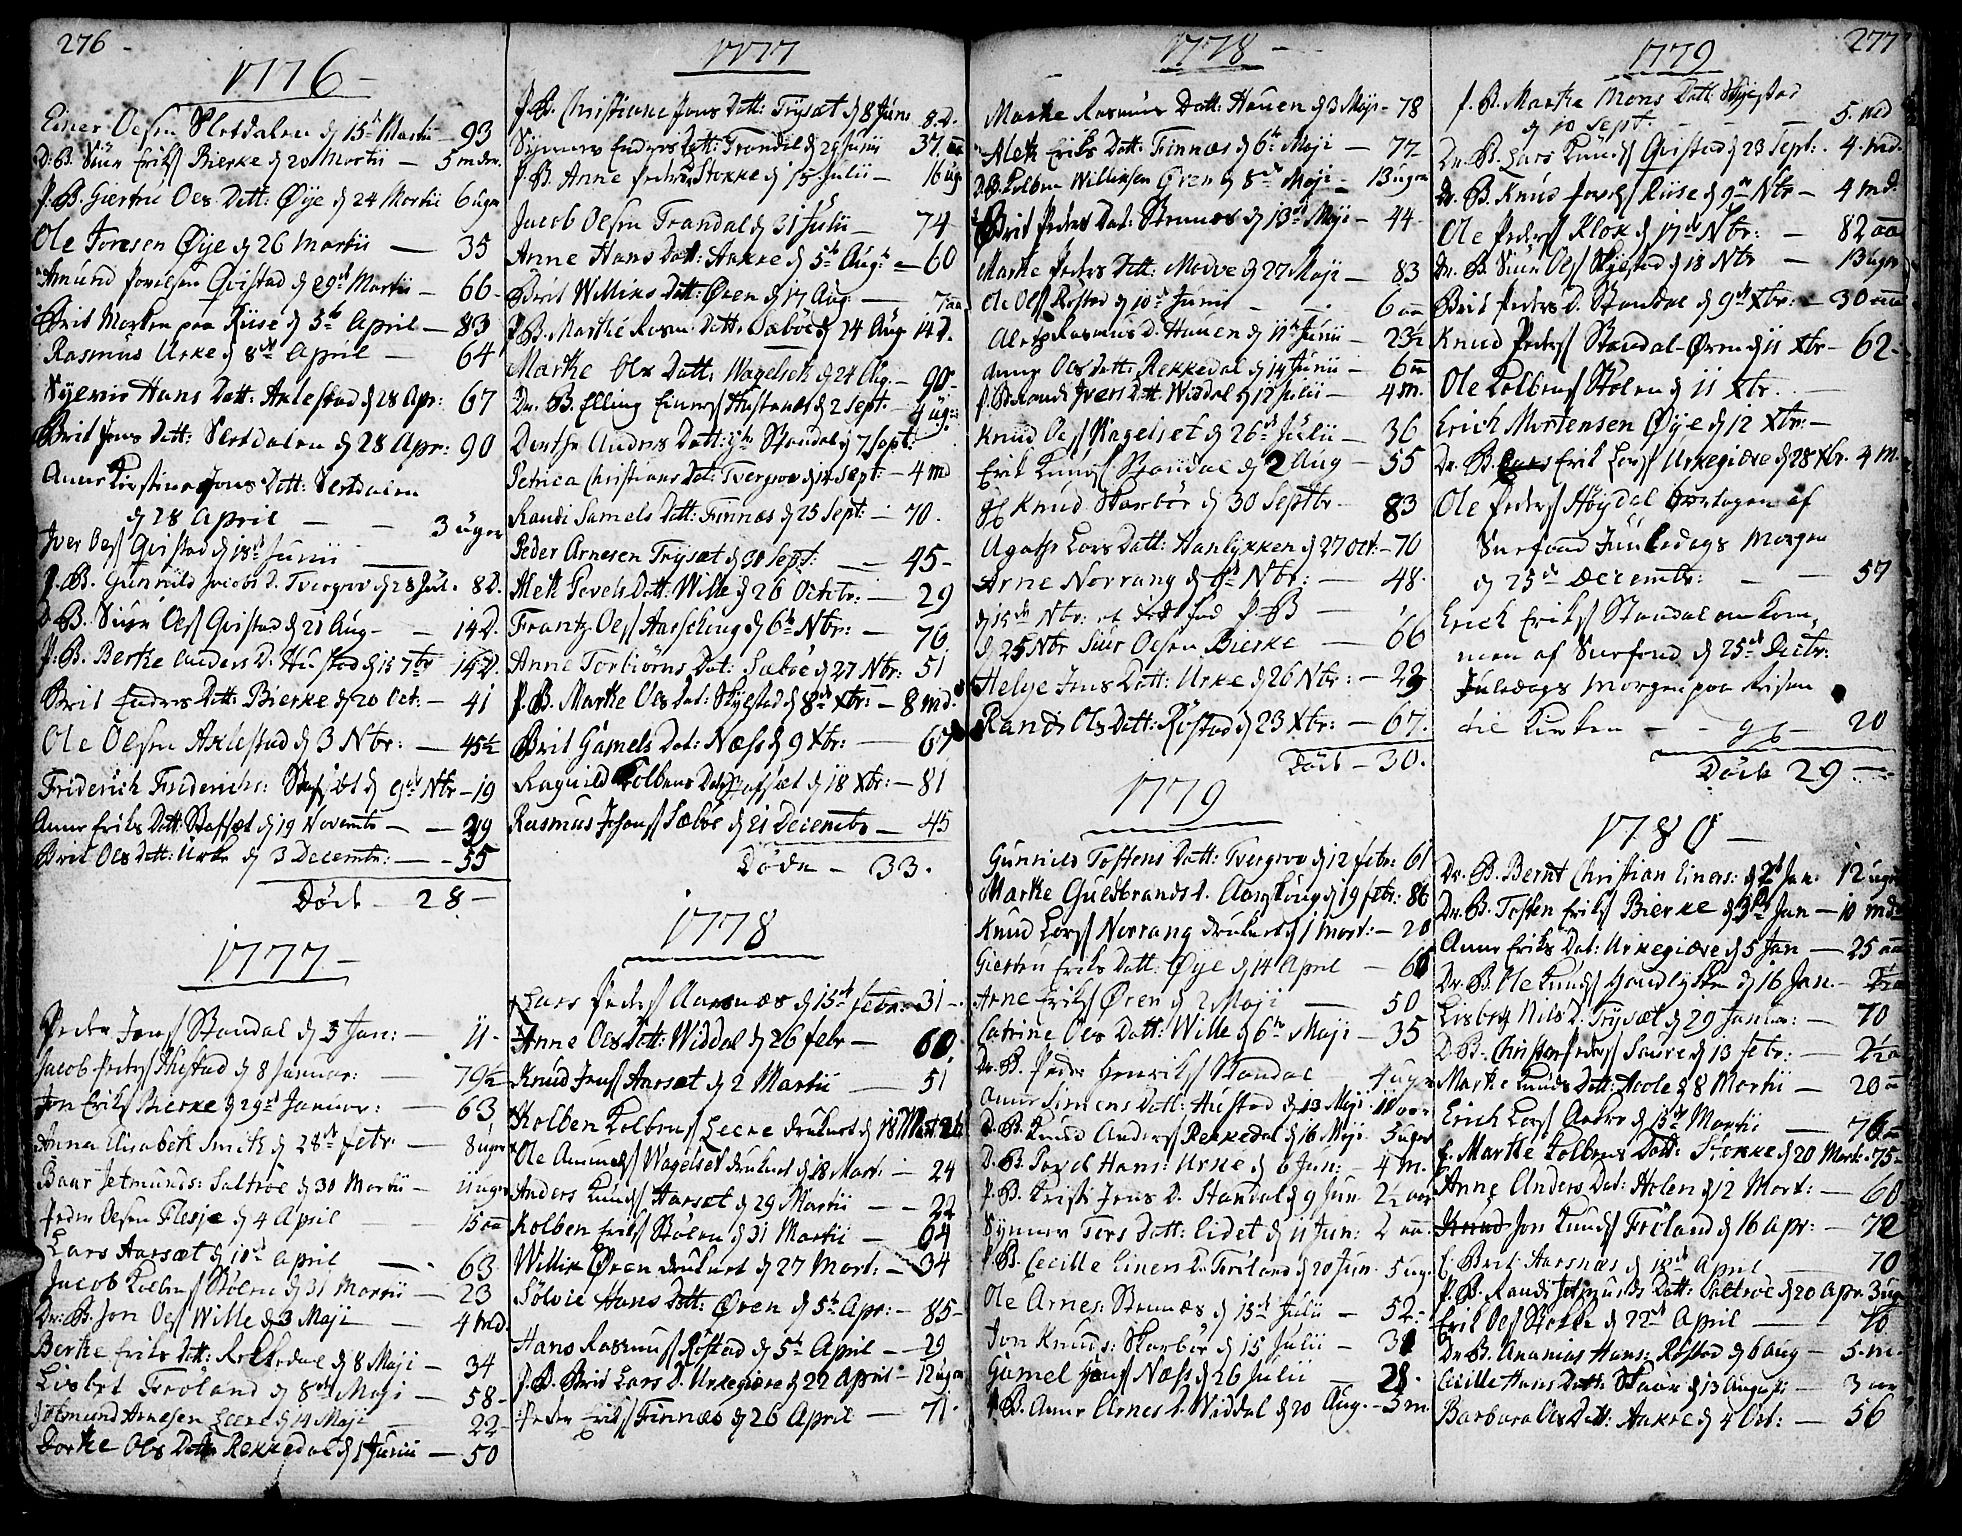 276
1776
Einer Oelsen Sletdalen d 15de Martii – 93
D: B. Siur Eriks Bierke d 20 Martii – 5 mdr.
P. B. Giertru Oes Datt: Øye d 24 Martii 6 uger
Ole Joresen Øye d 26 Martii — 35
Amund Povelsen Qvistad d 29de Martii – 66
Brit Morken paa Riise d 5te April – 83
Rasmus Urke d 8de April — 64
Hans Datt: Axlestad d 28 Apr: 67
Brit Jens Datt: Sletdalen d 28 Apr: 90
Anne Kirstine Jons Datt: Sletdalen
d 28 April — — 3 uger
Iver Oels Qvistad d 18de Junii
P. B. Gunnild Jacobs D. Tvergrov d 28 Jul. 8 d.
D. B. Siur Oels Qvistad d 21 Aug – – 14 d.
P. B. Berthe Anders D. Hustad d 15 7br 14 d.
Brit Enders Datt: Bierke d 20 Oct: – 41
Ole Oelsen Axlestad d 3 Nbr: — 45½
Friderich Friderichs: d 9de Nbr – 19
Anne Eriks Datt: Stafset d 19 Novembr — 29
Brit Oles Datt: Urke d 3 Decembr: — 55
Døde – 28 –
1777
Peder Jens Standal d 3 Jan: — 11
Jacob Peders Hustad d 8 Januar: 79½
Jon Eriks Bierke d 29de Januar: — 63
Anna Elisabeth Smith d 28de febr: – 8 uger
Baar Jetmunds: Saltroe d 30 Martii – 11 uger
Peder Oelsen Flesje d 4 April – 15 aar
Lars Aarsæt d 10de April — 63
Jacob Kolbens Stølen d 31 Martii – 23
Dr: B. Jon Oels Wille d 3 Maji — 4 md.
Berthe Eriks Datt: Rekkedal d 8 Maji – 34
Lisbet Froland d 8de Maji – 58
Jetmund Arnesen Leere d 14 Maji — 22
Dorthe Oles Datt: Rekkedal d 1 Junii – 50
1777
P. B. Christiane Jons Datt: Trysæt d 8 Jun: 5 d.
Synneve Enders Datt: Trandal d 29 Junii 37 aar
P. B. Anne Peders Stokke d 15 Julii – 16 ug
Jacob Oelsen Trandal d 31 Julii – 74
Anne Hans Datt: Aakre d 5te Aug: – 60
Brit Williks Datt: Øren d 17 Aug: — 7 aar
P. B. Marthe Rasm. Datt: Sæbøe d 24 Aug 14 d.
Marthe Ols Datt: Wagelset d 24 Aug. – 90
Dr. B. Elling Einers Hustanes d 2 Sept. – 4 uger
Dorthe Anders Datt: Standal d 7 Sept:
Petrica Christians Dat: Tvergrov d 14 Sept: – 4 md
Randi Samels Datt: Finnæs d 25 Sept: – 70.
Peder Arnesen Trysæt d 30 Sept: — 45 –
Alet Povels Datt: Wille d 26 Octbr: — 29
Frantz Oels Aarschoug d 6te Nbr: — 76
Anne Torbiørns Dat: Sæbøe d 27 Nbr: 51
P. B. Marthe Ols Dat: Skyestad d 8de Xbr: – 8 md.
Brit Gamels Dat: Næss d 9 Xbr: — 67
Ragnild Kolbens Datt: Stafset d 18 Xbr: – 81
Rasmus Johans Sæbøe d 21 Decembr – 45
Døde – 33.
1778
Lars Peders Aarsnæs d 15de febr: – 31 –
Anne Oles Datt: Widdal d 26 febr – 60.
Knud Jens Aarsæt d 2 Martii — 51
Kolben Kolbens Leere druknet d 18 Mart: 26
Ole Ammeds Wagelset druknet d 18 Mart: – 24
Anders Knuds Aarsæt d 29 Martii – – 22
Kolben Eriks Stølen d 31 Martii – 64
Willik Øren druknet d 27 Mart: – 34
Sølvie Hans Datt: Øren d 5te Apr: – 85 –
Hans Rasmus Røstad d 5te April – 29
P. B. Brit Lars D. Urkegiære d 22 April – 12 uger
Peder Eriks Finnæs d 26 April – 71.
1778 –
Marthe Rasmus Datt: Hauen d 3 Maji – 78
Aleth Eriks Datt: Finnæs d 6te Maji — 77 –
D. B. Kolben Williksen Øren d 8de Maji – 13 uger
Brit Peders Dat: Stennæs d 13de Maji – 44
Marthe Peders Datt: Molve d 27 Maji – 83
Ole Oels Røstad d 10de Junii – – 6 aar
Alet Rasmus D. Hauen d 11te Junii – 23½
Anne Oles Datt: Rekkedal d 14 Junii – 6 aar
P. B. Randi Ivers Datt. Widdal d 12 Julii – 4 m.
Knud Oels Wagelset d 26de Julii – 36
Erik Knuds Standal d 2 Aug – 55
Knud Skarbøe d 30 Septbr – 83
Agathe Lars Datt: Hanlykken d 27 Oct: – 70
Arne Norrang d 8de Nbr: — 48.
d 15de Nbr: et P. B —
d 25 Nbr Siur Oelsen Bierke — 66
Helge Jens Datt: Urke d 26 Nbr: – 29
Randi Ols Datt: Røstad d 23 Xbr: — 67.
Døde – 30.
1779
Gunnild Tostens Datt: Tvergrov d 12 febr: 61
Marthe Guldbrands D. Aarskoug d 19 febr: 86
Knud Lars Norrang druknet d 1 Mart: – 20
Giertru Eriks Datt: Øye d 14 April — 66
Arne Eriks Øren d 2 Maji — 50
Catrine Oles Datt: Wille d 6te Maji – 35
Dr. B. Peder Henriks Standal 4 uger
Anne Simens Datt: Hustad d 13 Maji 11 aar
D. B. Knud Anders Rekkedal d 16 Maji 5 uger
D. B. Povel Hans: Urke d 6 Jun: – 4 m.
P. B. Kristi Jens D. Standal d 9 Jun. 2½ aar
Synnev Tors Datt: Eidet d 11 Jun: 2 aar
P. B. Cecille Einers D. Friland d 20 Jun. 5 ug
Ole Arnes: Stennæs d 15de Julii – 52 –
Jon Knuds: Skarbøe d 15 Julii – 31
Gamel Jens Næss d 26 Julii — 28.
P. B. Anne Arnes D. Widdal d 20 Aug. – 3 m.
277
1779
P. B. Marthe Mons Datt: Skyestad
d 10 Sept. – – 5 md
Dr. B. Lars Knuds Qvistad d 23 Sept: 4 md.
Dr. B. Knud Jonss Riise d 9de Nbr – 4 md.
Ole Peders Klok d 17de Nbr: — 82 aar
Dr. B. Siur Oels Skyestad d 18 Nbr — 13 uger
Brit Peders D. Standal d 9de Xbr: – 30 aar
Knud Peders Standal-Øren d 11 Xbr – 62 –
Ole Kolbens Stølen d 11 Xbr. —
Erich Mortensen Øye d 12 Xbr: —
Dr. B. Erik Lars Urkegiære d 28 Xbr. 4 m.
Ole Peders Høydal bortagen af
Sneefond Juuledags Morgen
d 25de Decembr: — — 57
Erich Eriks Standal omkom,
men af Sneefond d 25de Decbr:
Juledags Morgen paa Reisen
til Kirken – – 20
Døde 29 –
1780 –
Dr. B. Bernt Christian Einers: d 2de Jan. 12 uger
Dr. B. Tosten Eriks Bierke d 3de Jan – 10 mdr
Anne Eriks Dat: Urkegiære d 5 Jan – 25 aar
Dr. B. Ole Knuds Handlykken d 16 Jan. –
Lisbet Nils D. Trysæt d 29 Januar: – 70
D. B. Christen Peders Saure d 13 febr: – 2½ aar
Marthe Knuds Datt: Hole d 8 Martii — 20 aar
Erich Lars Aakre d 13de Martii — 76 aar
Marthe Kolbens Datt: Stokke d 20 Mart: 75
Anne Anders Dat: Holen d 12 Mart: – 60
Jon Knuds Friland d 16 Apr: – 72
Brit Aarsnæs d 18de April — 70
P. B. Randi Jetmunds Datt: Saltroe d 20 Apr. 3 uger
Erik Oels Stokke d 22de April — 70
Dr. B. Ananias Hans: Røstad d 6 Aug – 5 m.
Cecille Hans Datt: Skaar d 13 Augusti – 3 aar
Barbara Ols Datt: Aakre d 4 Oct: – 56